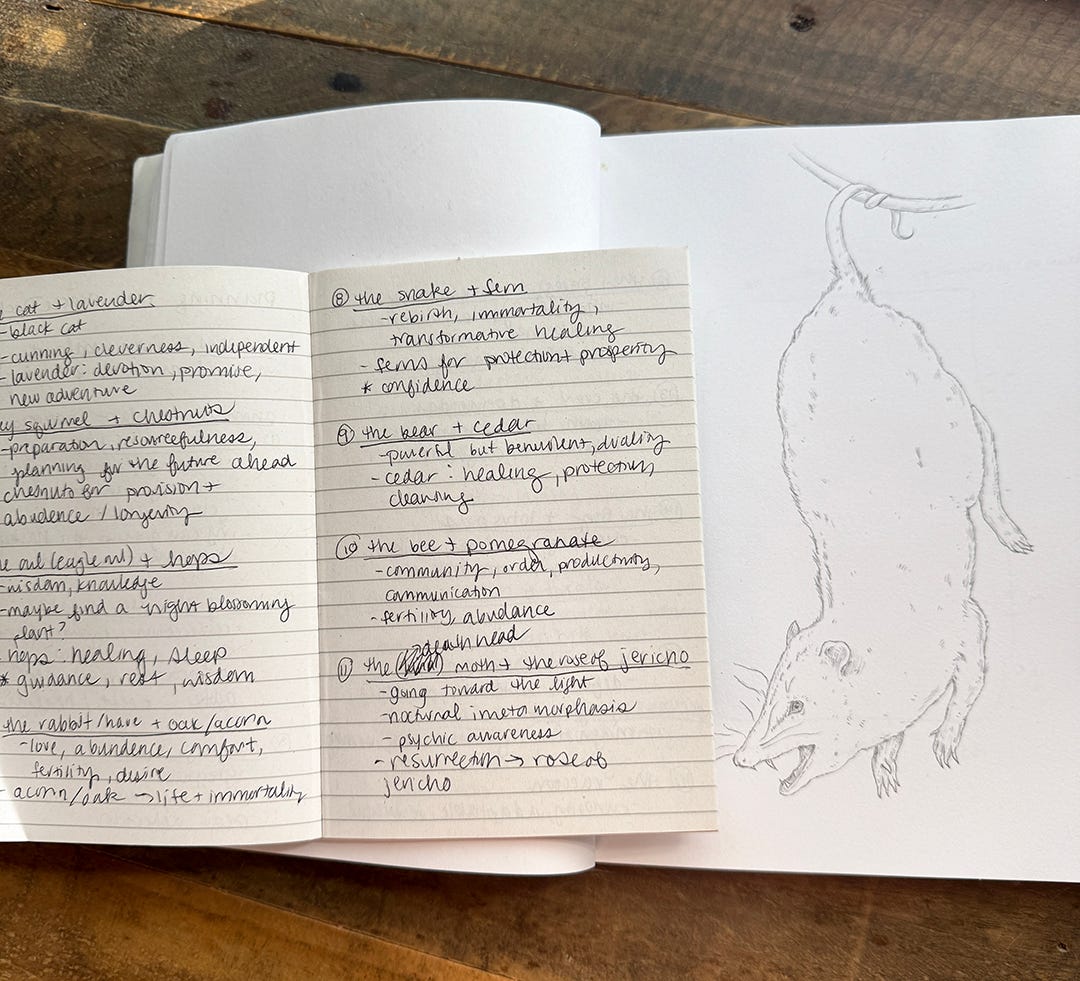 cat + lavender
- black cat
- cunning, cleverness, independent
- lavender: devotion, promise,
new adventure
squirrel + chestnuts
- preparation, resourcefulness,
planning for the future ahead
chestnuts for provision +
abudence / longevity
owl (eagle owl) + hops
- wisdom, knowledge
- maybe find a night blossoming
plant?
hops: healing, sleep
* guidance, rest, wisdom
the rabbit/hare + oak/acorn
- love, abundence, comfort,
fertility, desire
- acorn/oak → life + immortality
⑧ the snake + fern
- rebirth, immortality,
transformative healing
- ferns for protection + prosperity
* confidence
⑨ the bear + cedar
- powerful but benevolent, duality
- cedar: healing, protection,
cleansing
⑩ the bee + pomegranate
- community, order, productivity,
communication
- fertility, abudance
death head
⑪ the moth + the rose of jericho
- going toward the light
- nocturnal, metamorphasis
- psychic awareness
- resurrection → rose of
jericho